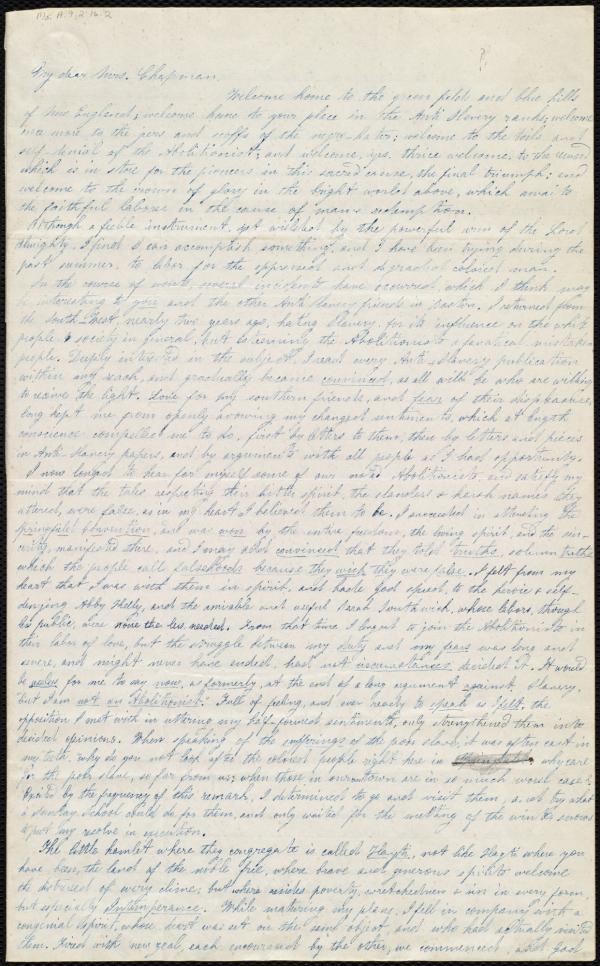 Ms. A. 9. 2. 16. 2
My dear Mrs. Chapman,
Welcome home to the green fields and blue hills
of New England; welcome home to your place in the Anti Slavery ranks; welcome
once more to the jeers and scoffs of the negro-hater; welcome to the toils and
self-denial of the Abolitionist; and welcome, yes, thrice welcome, to the reward
which is in store for the pioneers in this sacred cause, the final triumph; and
welcome to the crown of glory in the bright world above, which awaits
the faithful laborer in the cause of man's redemption.
Although a feeble instrument, yet upheld by the powerful arm of the Lord
Almighty, I find I can accomplish something, and I have been trying during the
past summer, to labor for the oppressed and degraded colored man.
In the course of events, several incidents have occurred, which I think may
be interesting to you and the other Anti Slavery friends in Boston. I returned from
the South-West, nearly two years ago, hating Slavery, for its influence on the white
people & society in general, but believing the Abolitionists a fanatical mistaken
people. Deeply interested in the subject, I read every Anti-Slavery publication
within my reach, and gradually became convinced, as all will be who are willing
to receive the light. Love for my southern friends, and fear of their displeasure,
long kept me from openly avowing my changed sentiments, which at length
conscience compelled me to do, first by letters to them, then by letters and pieces
in Anti Slavery papers, and by arguments with all people as I had opportunity.
I now longed to hear for myself some of our noted Abolitionists, and satisfy my
mind that the tales respecting their bitter spirit, the slanders & harsh names they
uttered, were false, as in my heart I believed them to be. I succeeded in attending the
Springfield Convention, and was won by the entire freedom, the loving spirit, and the sin-
cerity, manifested there, and I may add convinced that they told truths, solemn truths
which the people call falsehoods because they wish they were false. I felt from my
heart that I was with them in spirit, and bade God speed, to the heroic & self-
denying Abby Kelly, and the amiable and useful Sarah Southwick, whose labors, though
less public, were none the less needed. From that time I longed to join the Abolitionists in
their labor of love, but the struggle between my duty and my fears was long and
severe, and might never have ended, had not circumstances decided it. It would
be useless for me to say now, as formerly, at the end of a long argument against Slavery,
"but I am not an Abolitionist." Full of feeling, and ever ready to speak as I felt, the
opposition I met with in uttering my half formed sentiments, only strengthened them into
decided opinions. When speaking of the sufferings of the poor slave, it was often cast in
my teeth, why do you not look after the colored people right here in why care
for the poor slave, so far from us, when those in our own town are in so much worse case?
Excited by the frequency of this remark, I determined to go and visit them, and try what
a Sunday School could do for them, and only waited for the melting of the winter's snows
to put my resolve in execution.
The little hamlet where they congregate is called Hayti, not like Hayti where you
have been, the land of the noble free, where brave and generous spirits welcome
the diseased of every clime; but where resides poverty, wretchedness & sin in every form
but especially Intemperance. While maturing my plans, I fell in company with a
congenial spirit, whose heart was set on the same object, and who had actually visited
them. Fired with new zeal, each encouraged by the other, we commenced, and God